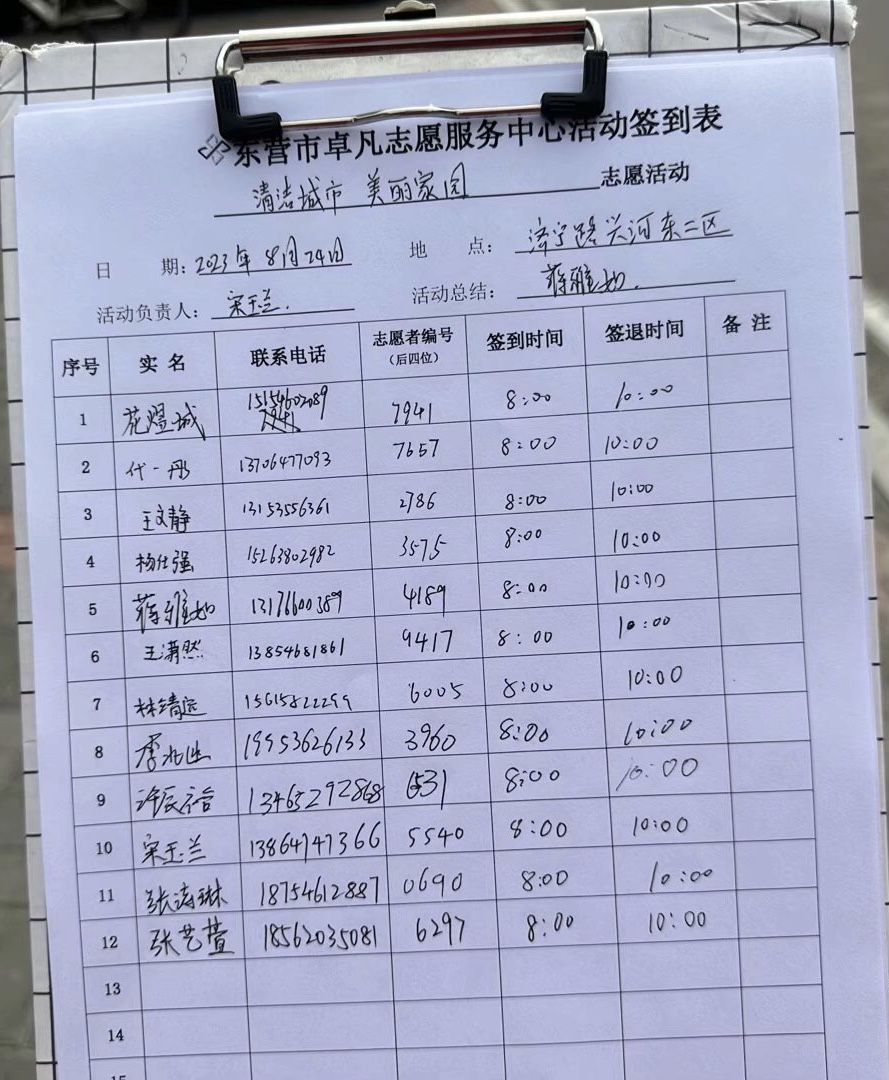 东营市卓凡志愿服务中心活动签到表
清洁城市 美丽家园 志愿活动
日 期: 2023年8月24日 地 点: 济宁路兴河东二区
活动负责人: 宋玉兰. 活动总结: 蒋雅如.
序号 实名 联系电话 志愿者编号(后四位) 签到时间 签退时间 备注
1 花煜城 15154602089 7941 8:00 10:00
2 代一彤 13706477093 7657 8:00 10:00
3 王文静 13153556361 2786 8:00 10:00
4 杨仕强 15263802982 3575 8:00 10:00
5 蒋雅如 13176600389 4189 8:00 10:00
6 王潇然 13854681861 9417 8:00 10:00
7 林靖远 15615822299 6005 8:00 10:00
8 李兆 19953626133 3960 8:00 10:00
9 许辰 13465292868 6531 8:00 10:00
10 宋玉兰 13864747366 5540 8:00 10:00
11 张涛琳 18754612887 0690 8:00 10:00
12 张艺萱 18562035081 6297 8:00 10:00
13
14
15